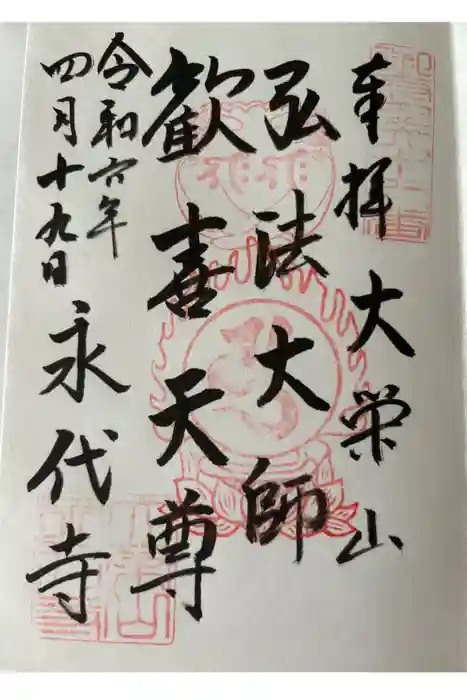 奉拝 大栄山
弘法大師
歓喜天尊
令和六年
四月十九日 永代寺